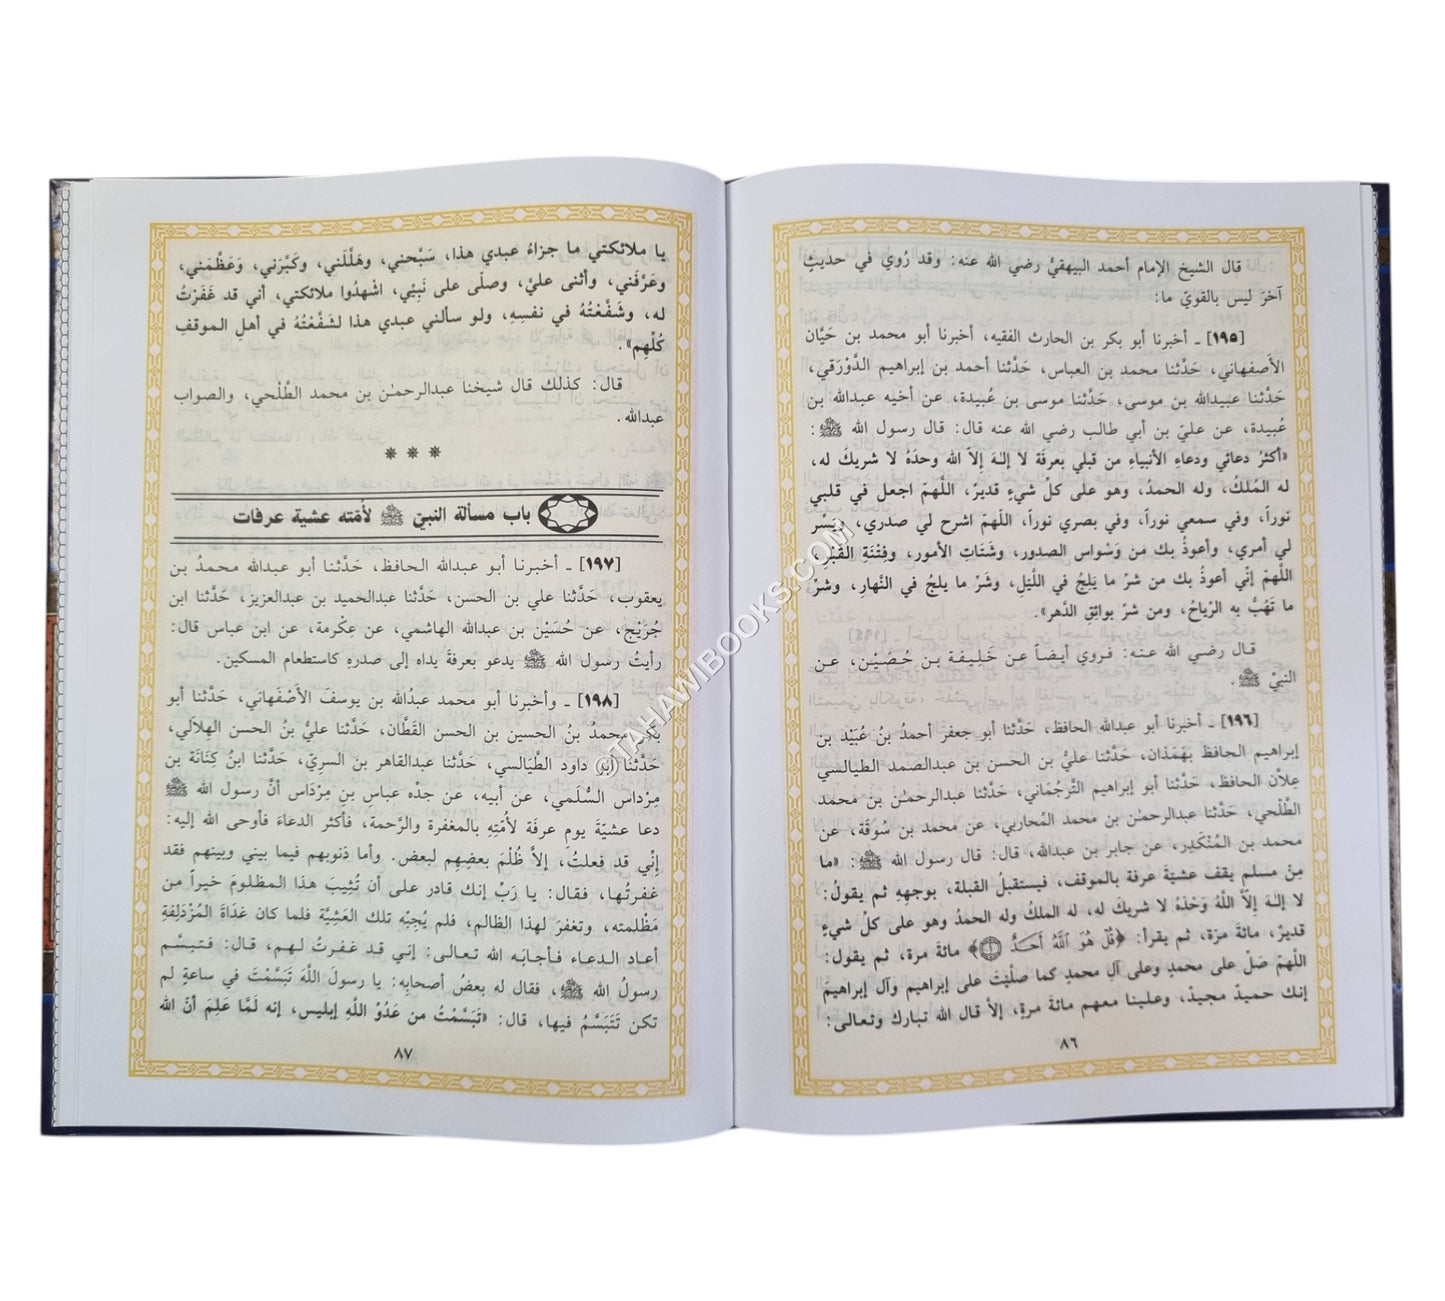 قال الشيخ الإمام أحمد البيهقيُّ رضي الله عنه: وقد رُوي في حديثٍ
آخرَ ليس بالقويّ ما:
[١٩٥] ـ أخبرنا أبو بكر بن الحارث الفقيه، أخبرنا أبو محمد بن حَيَّان
الأصفهاني، حَدَّثنا محمد بن العباس، حَدَّثنا أحمد بن إبراهيم الدَّوْرَقي،
حَدَّثنا عبيدالله بن موسى، حَدَّثنا موسى بن عُبيدة، عن أخيه عبدالله بن
عُبيدة، عن عليّ بن أبي طالب رضي الله عنه قال: قال رسول الله ﷺ:
«أكثرُ دعائي ودعاءِ الأنبياءِ من قبلي بعرفَة لا إلـٰهَ إلاّ الله وحدَهُ لا شريكَ له،
له المُلكُ، وله الحمدُ، وهو على كلِّ شيءٍ قديرٌ، اللَّهمّ اجعل في قلبي
نوراً، وفي سمعي نوراً، وفي بصري نوراً، اللَّهمّ اشرح لي صدري، ويَسِّر
لي أمري، وأعوذُ بك من وَسْواس الصدور، وشَتَاتِ الأمور، وفِتْنَةِ القَبْر،
اللَّهمّ إنِّي أعوذُ بك من شرّ ما يَلِجُ في اللَّيْل، وشَرّ ما يلجُ في النَّهارِ، وشرّ
ما تَهُبُّ به الرّياحُ، ومن شرّ بوائِقِ الدَّهر».
قـال رضـي الله عـنـه: فـروي أيـضـاً عـن خَـلِـيـفـة بـن حُـصَـيْـن، عـن
النبيّ ﷺ.
[١٩٦] ـ أخبرنا أبو عبدالله الحافظ، حَدَّثنا أبو جعفر أحمدُ بنُ عُبَيْد بن
إبراهيم الحافظ بهَمَذان، حَدَّثنا عليُّ بن الحسن بن عبدالصمد الطيالسي
عِلاّن الحافظ، حَدَّثنا أبو إبراهيم التَّرجُمَاني، حَدَّثنا عبدالرحمـٰن بن محمد
الطَّلْحي، حَدَّثنا عبدالرحمـٰن بن محمد المُحاربي، عن محمد بن سُوقَة، عن
محمد بن المُنْكَدِر، عن جابر بن عبدالله، قال: قال رسول الله ﷺ: «ما
مِنْ مسلم يقف عشيةَ عرفة بالموقف، فيستقبلُ القبلة، بوجههِ ثم يقولُ:
لا إلـٰهَ إلاّ اللَّهُ وَحْدَهُ لا شريكَ له، له الملكُ وله الحمدُ وهو على كلّ شيءٍ
قديرٌ، مائةَ مرّة، ثم يقرأ: ﴿قُلْ هُوَ ٱللَّهُ أَحَدٌ ١﴾ مائةَ مرة، ثم يقول:
اللَّهمّ صَلّ على محمدٍ وعلى آلِ محمدٍ كما صلَّيْتَ على إبراهيم وآل إبراهيمَ
إنك حميدٌ مجيدٌ، وعلينا معهم مائةَ مرةٍ، إلاَّ قال الله تبارك وتعالى:
٨٦
يا ملائكتي ما جزاءُ عبدي هذا، سَبَّحني، وهَلَّلَني، وكَبَّرَني، وَعَظَّمَني،
وعَرَّفَني، وأثنى عليَّ، وصلّى على نَبِيّي، اشْهدُوا ملائكتي، أني قد غَفَرْتُ
له، وشَفَّعْتُهُ في نفسِهِ، ولو سألني عبدي هذا لشَفَّعْتُهُ في أهلِ الموقفِ
كُلِّهِم».
قال: كذلك قال شيخنا عبدالرحمـٰن بن محمد الطَّلْحي، والصواب
عبدالله.
* * *
باب مسألة النبيّ ﷺ لأمّته عشية عرفات
[١٩٧] ـ أخبرنا أبو عبدالله الحافظ، حَدَّثنا أبو عبدالله محمدُ بن
يعقوب، حَدَّثنا علي بن الحسن، حَدَّثنا عبدالحميد بن عبدالعزيز، حَدَّثنا ابن
جُرَيْج، عن حُسَيْن بن عبدالله الهاشمي، عن عِكْرمة، عن ابن عباس قال:
رأيتُ رسول الله ﷺ يدعو بعرفةَ يداه إلى صدرهِ كاستطعام المسكين.
[١٩٨] ـ وأخبرنا أبو محمد عبدُالله بن يوسفَ الأصْفَهاني، حَدَّثنا أبو
بكر محمدُ بنُ الحسين بن الحسن القَطَّان، حَدَّثنا عليُّ بنُ الحسن الهِلاَلي،
حَدَّثنا أبو داود الطَّيَالسي، حَدَّثنا عبدالقاهر بن السريّ، حَدَّثنا ابنُ كِنَانَة بن
مِرْداس السُّلَمي، عن أبيه، عن جدّه عباس بنِ مِرْدَاس أنَّ رسول الله ﷺ
دعا عشيّةَ يومِ عرفَة لأمّتِهِ بالمغفرة والرَّحمة، فأكثر الدعاءَ فأوحى الله إليه:
إنّي قد فعلتُ، إلاَّ ظُلْمَ بعضِهِم لبعض. وأما ذنوبهم فيما بيني وبينهم فقد
غفرتُها، فقال: يا رَبّ إنك قادر على أن تُثِيبَ هذا المظلومَ خيراً مِن
مَظْلمته، وتغفرَ لهذا الظالم، فلم يُجِبْه تلك العَشِيَّة فلما كان غَدَاةَ المُزْدَلِفةِ
أعادِ الـدعـاء فـأجـابَـه الله تـعـالـى: إنـي قـد غـفـرتُ لـهـم، قـال: فـتـبـسَّـم
رسولُ الله ﷺ، فقال له بعضُ أصحابِه: يا رسولَ اللَّهَ تَبَسَّمْتَ في ساعةٍ لم
تكن تَتَبَسَّمُ فيها، قال: «تَبَسَّمْتُ من عَدُوِّ اللَّهِ إبليس، إنه لَمَّا عَلِمَ أنَّ الله
٨٧
© TAHAWIBOOKS.COM